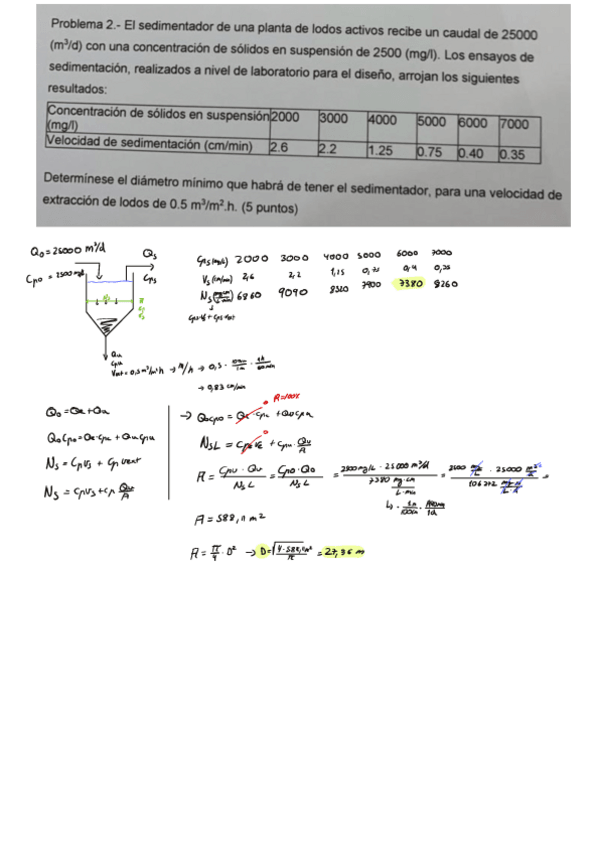 Problema 2.- El sedimentador de una planta de lodos activos recibe un caudal de 25000
(m³/d) con una concentración de sólidos en suspensión de 2500 (mg/l). Los ensayos de
sedimentación, realizados a nivel de laboratorio para el diseño, arrojan los siguientes
resultados:
Concentración de sólidos en suspensión (mg/l) 2000 3000 4000 5000 6000 7000
Velocidad de sedimentación (cm/min) 2.6 2.2 1.25 0.75 0.40 0.35
Determínese el diámetro mínimo que habrá de tener el sedimentador, para una velocidad de
extracción de lodos de 0.5 m³/m².h. (5 puntos)
Q₀ = 25000 m³/d Qs
Cp₀ = 2500 mg/l Cps
2000 3000 4000 5000 6000 7000
Vs (cm/min) 2,6 2,2 1,25 0,75 0,4 0,35
Ns 6860 9090 8320 7900 7380 8260
Qu
Cpu
Vext = 0,5 m³/m²h → m/h → 0,5 ·
→ 0,83 cm/min
R=100%
Q₀ = Qe + Qu
→ Q₀Cp₀ = Qe·Cpe + Qu·Cpu
Q₀Cp₀ = Qe·Cpe + Qu Cpu
NsL = + Cpu · Qu/A
Ns = CpVs + Cp Vext
Ns = CpVs + Cp Qu/A
A = Cpu · Qu / NsL = Cp₀ · Q₀ / NsL = 2500 mg/L · 25000 m³/d / 7380 mg·cm/L·min = 2500 mg/L · 25000 m³/d =
A = 588,11 m²
A = π/4 · D² → D = √(4·588,11 m²/π) = 27,36 m